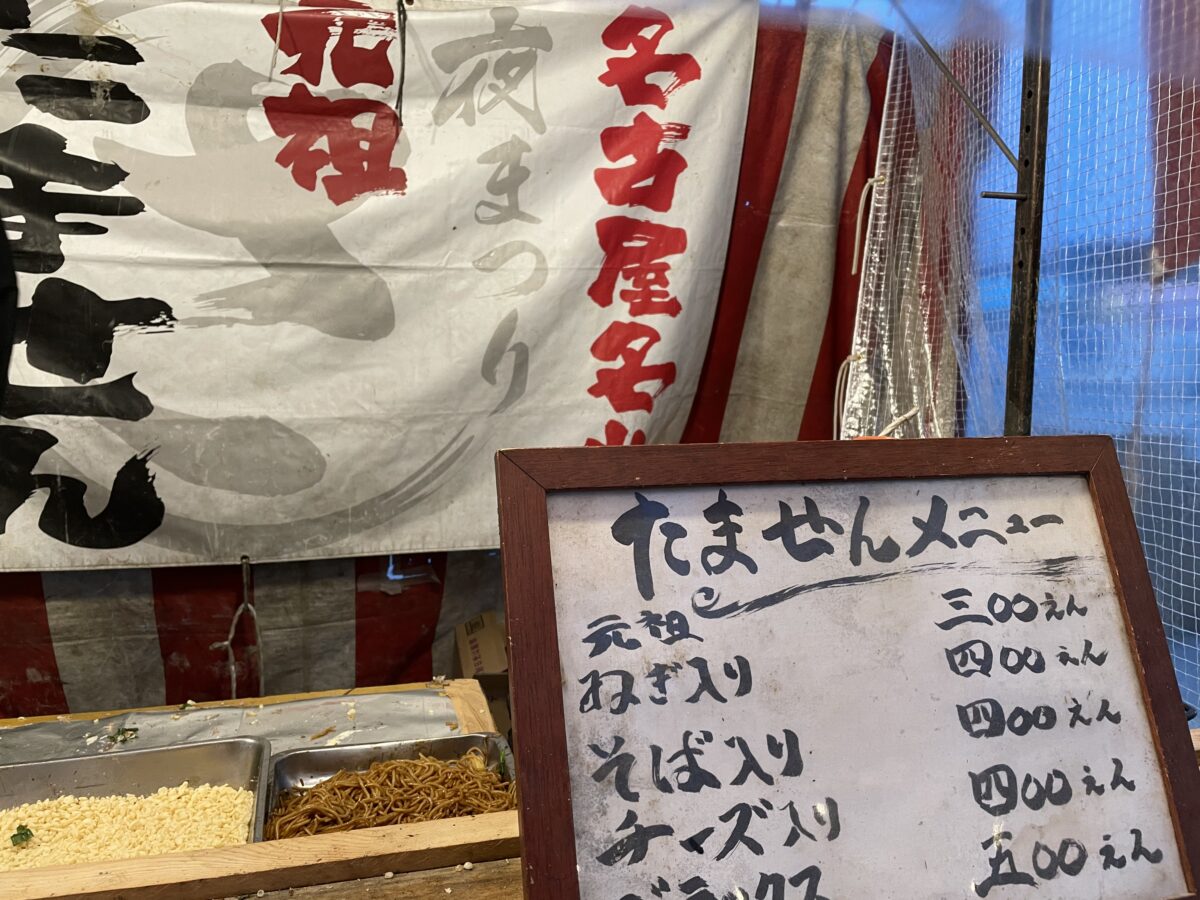 名古屋名
夜まつり
元祖
たませんメニュー
元祖 三00えん
ねぎ入り 四00えん
そば入り 四00えん
チーズ入り 四00えん
デラックス 五00えん